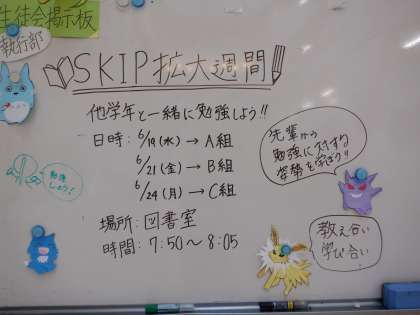 生徒会掲示板
執行部
SKIP拡大週間
他学年と一緒に勉強しよう!!
日時: 6/19(水)→A組
6/21(金)→B組
6/24(月)→C組
場所: 図書室
時間: 7:50〜8:05
勉強しよう!
先輩から
勉強に対する
姿勢を学ぼう!!
教え合い
学び合い